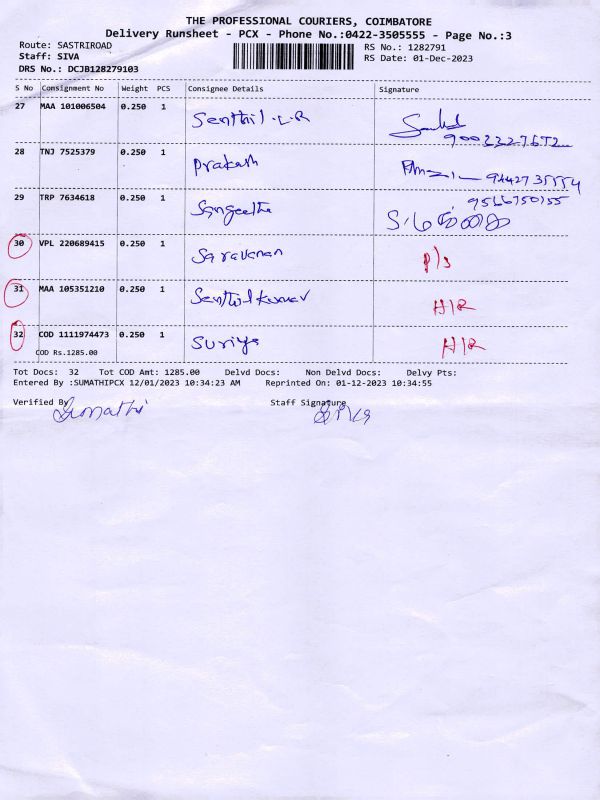 THE PROFESSIONAL COURIERS, COIMBATORE
Delivery Runsheet - PCX - Phone No.:0422-3505555 - Page No.:3
Route: SASTRIROAD
RS No.: 1282791
Staff: SIVA
RS Date: 01-Dec-2023
DRS No.: DCJB128279103
S No Consignment No Weight PCS Consignee Details Signature
27 MAA 101006504 0.250 1 Senthil.L.R
28 TNJ 7525379 0.250 1 Prakash 9442735554
9566750155
29 TRP 7634618 0.250 1 Sangeetha
30 VPL 220689415 0.250 1 Saravanan P/s
31 MAA 105351210 0.250 1 Senthilkumar H/R
32 COD 1111974473 0.250 1 Suriya H/R
COD Rs.1285.00
Tot Docs: 32 Tot COD Amt: 1285.00 Delvd Docs: Non Delvd Docs: Delvy Pts:
Entered By :SUMATHIPCX 12/01/2023 10:34:23 AM Reprinted On: 01-12-2023 10:34:55
Verified By Staff Signature
Sumathi